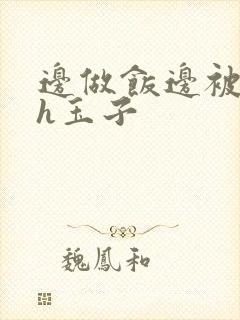 邊做飯邊被
h玉子
魏鳳和